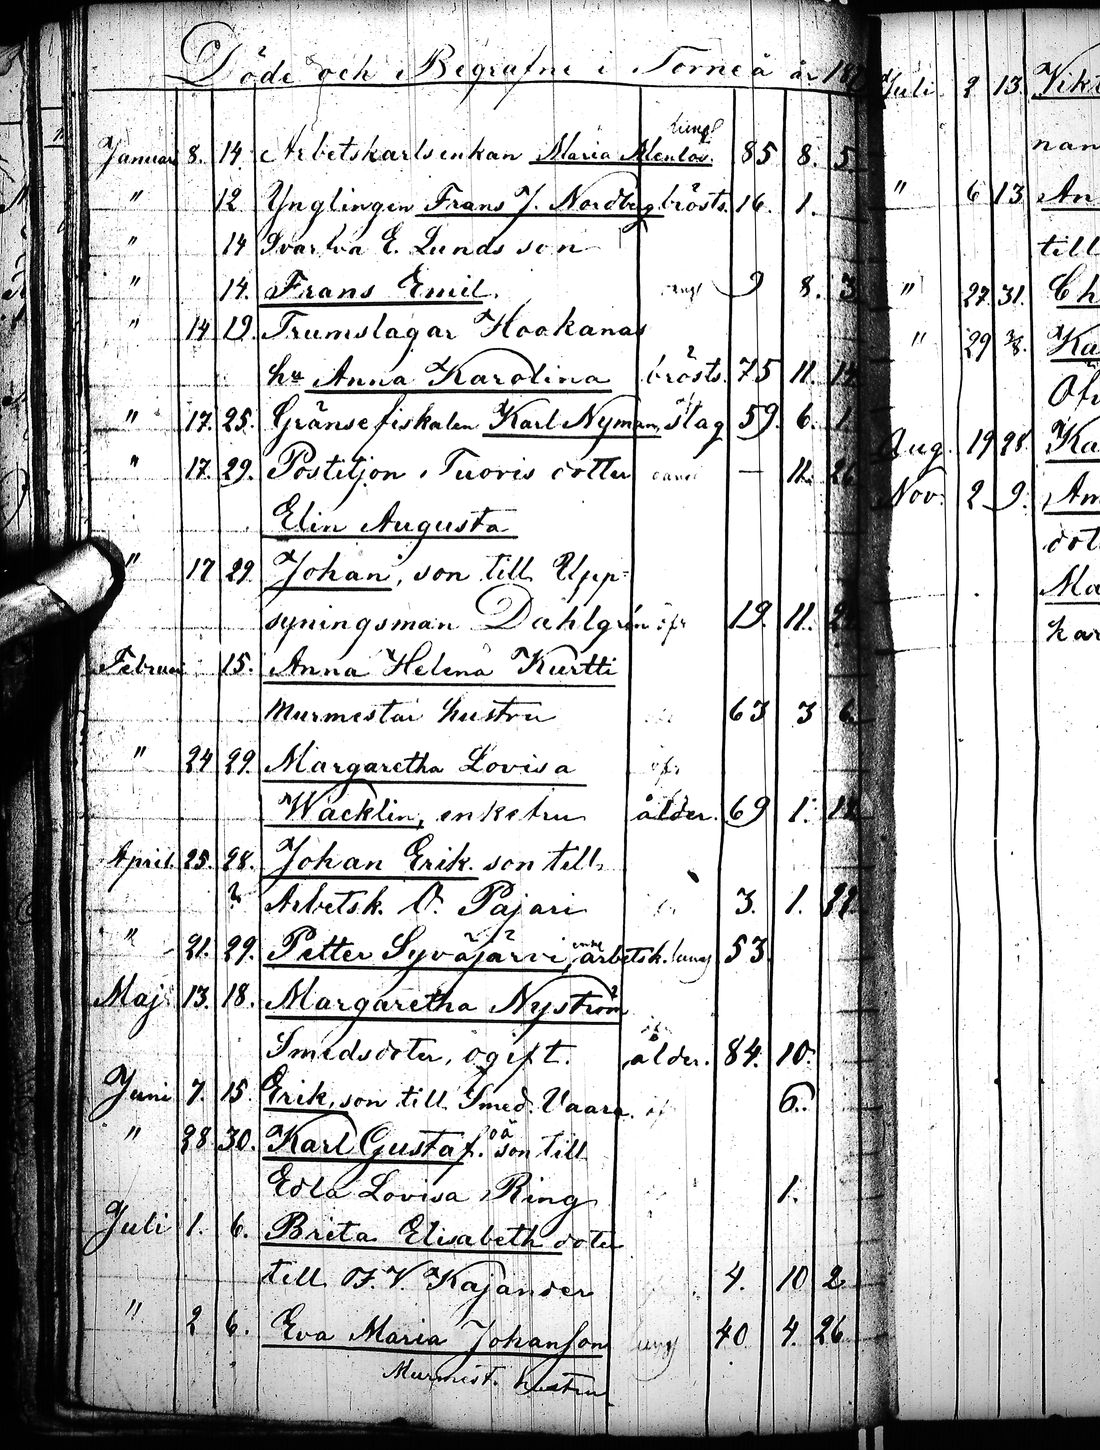 Döde och Begrafne i Torneå år 18
lungs
Januari 8. 14. Arbetskarlsenkan Maria Menlös. 85 8. 5
" 12 Ynglingen Frans J. Nordberg brösts. 16. 1.
" 14 Svarfva E. Lunds son
" 14. Frans Emil. 9 8. 3
" 14 19. Trumslagar Hookanas
hu Anna Karolina brösts. 75 11. 14
" 17. 25. Gränsefiskalen Karl Nyman, slag 59. 6. 1
" 17. 29. Postiljon Tuoris dotter — 11. 26
Elin Augusta
" 17 29. Johan, son till Upp=
syningsman Dahlgrén 19. 11.
Februari 15. Anna Helena Kurtti
Murmestar hustru 63 3 6
" 24 29. Margaretha Lovisa
Wacklin, enkefru ålder. 69 1.
April 25. 28. Johan Erik. son till
? Arbetsk. O. Pajari 3. 1.
" 21. 29. Petter Syväjärvi, arbetsk. lungs 53
Maj 13. 18. Margaretha Nyström
Smedsdoter, ogift. ålder. 84. 10.
Juni 7. 15. Erik, son till Smed. Vaara. 6.
" 28 30. Karl Gustaf. oä son till
Edla Lovisa Ring 1.
Juli 1. 6. Brita Elisabeth doter
till F. V. Kajander 4. 10 2
" 2 6. Eva Maria Johanson lungs 40 4. 26
Murmest. hustru
Juli 2 13. Vikt
nan
" 6 13 An
till
" 27 31. Ch
" 29 Ka
Öfv
Aug. 19 28. Ka
Nov. 2 9. Am
dot
Ma
kar